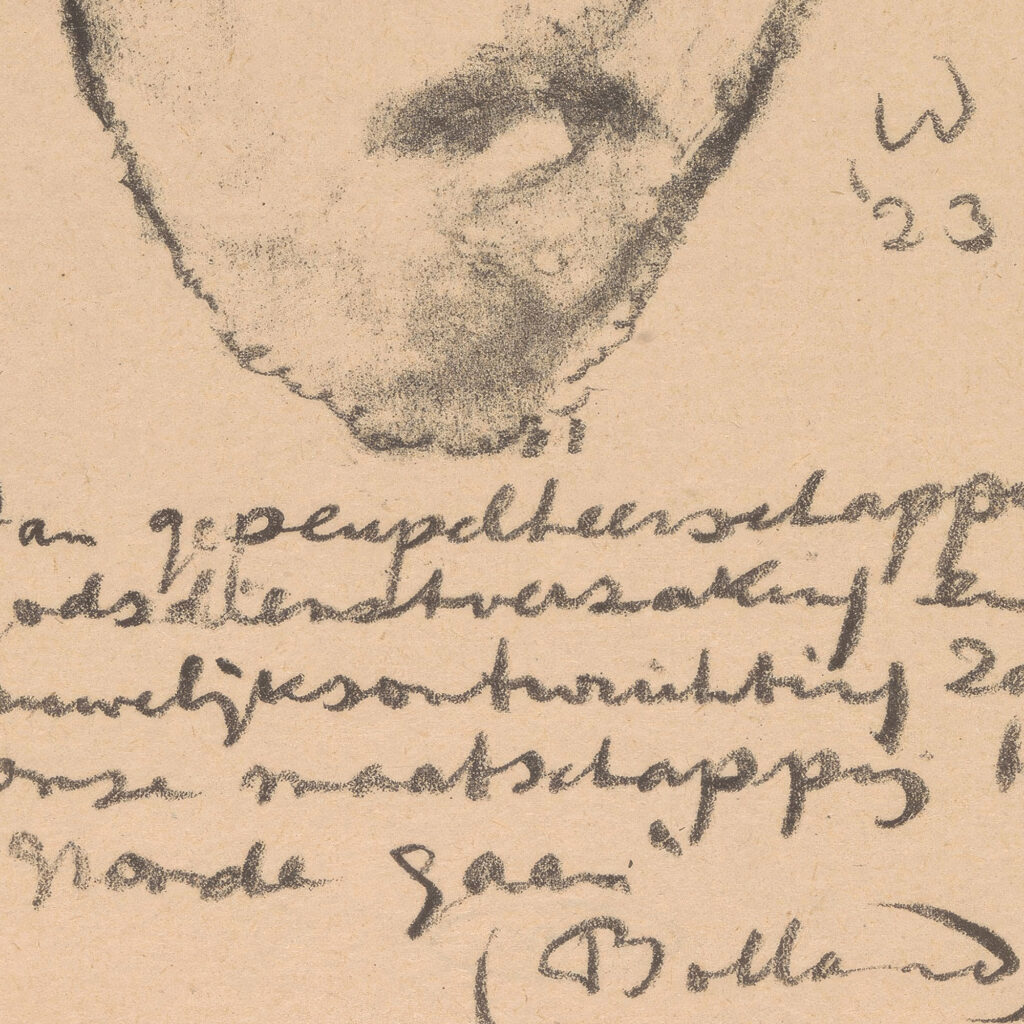 W
'23
an gepeupelheerschappy
odsdienstverzaking en
uwelijksontwrichting za
onze maatschappij
gronde gaan"
(Bolland)